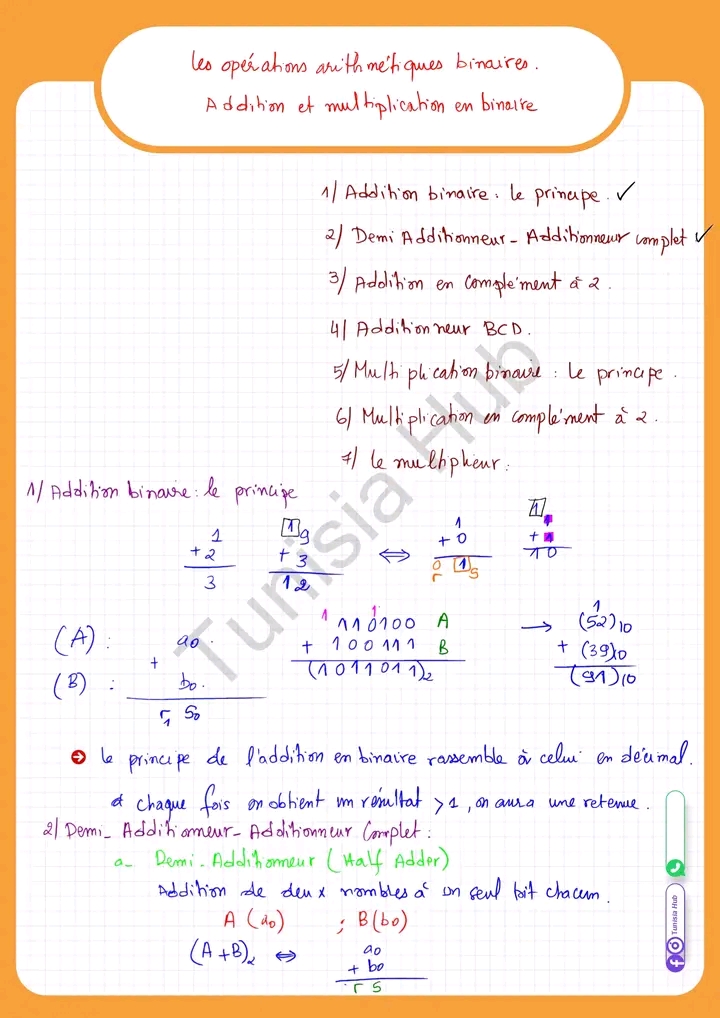 Les opérations arithmétiques binaires.
Addition et multiplication en binaire
1/ Addition binaire : le principe. ✓
2/ Demi Additionneur - Additionneur complet ✓
3/ Addition en complément à 2.
4/ Additionneur BCD.
5/ Multiplication binaire : Le principe.
6/ Multiplication en complément à 2.
7/ le multiplieur :
1/ Addition binaire : le principe
1 + 2 3
1 9 + 3 12
⇔
1 + 0 0 1 r s
1 1 + 1 10
(A) : a0
+
(B) : b0
r1 S0
1 1
110100 A
+ 100111 B
(1011011)2
→
1
(52)10
+ (39)10
(91)10
le principe de l'addition en binaire rassemble à celui en décimal.
à chaque fois on obtient un résultat > 1, on aura une retenue.
2/ Demi-Additionneur - Additionneur Complet :
a- Demi-Additionneur (Half Adder)
Addition de deux nombres à un seul bit chacun.
A (a0) ; B (b0)
(A+B)2 ⇔ a0
+ b0
r s
Tunisia Hub
Tunisia Hub